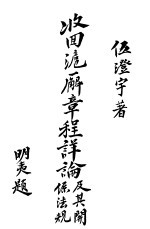 伍澄宇著
收回滬廨章程詳論
及其關
係法規
明夷題